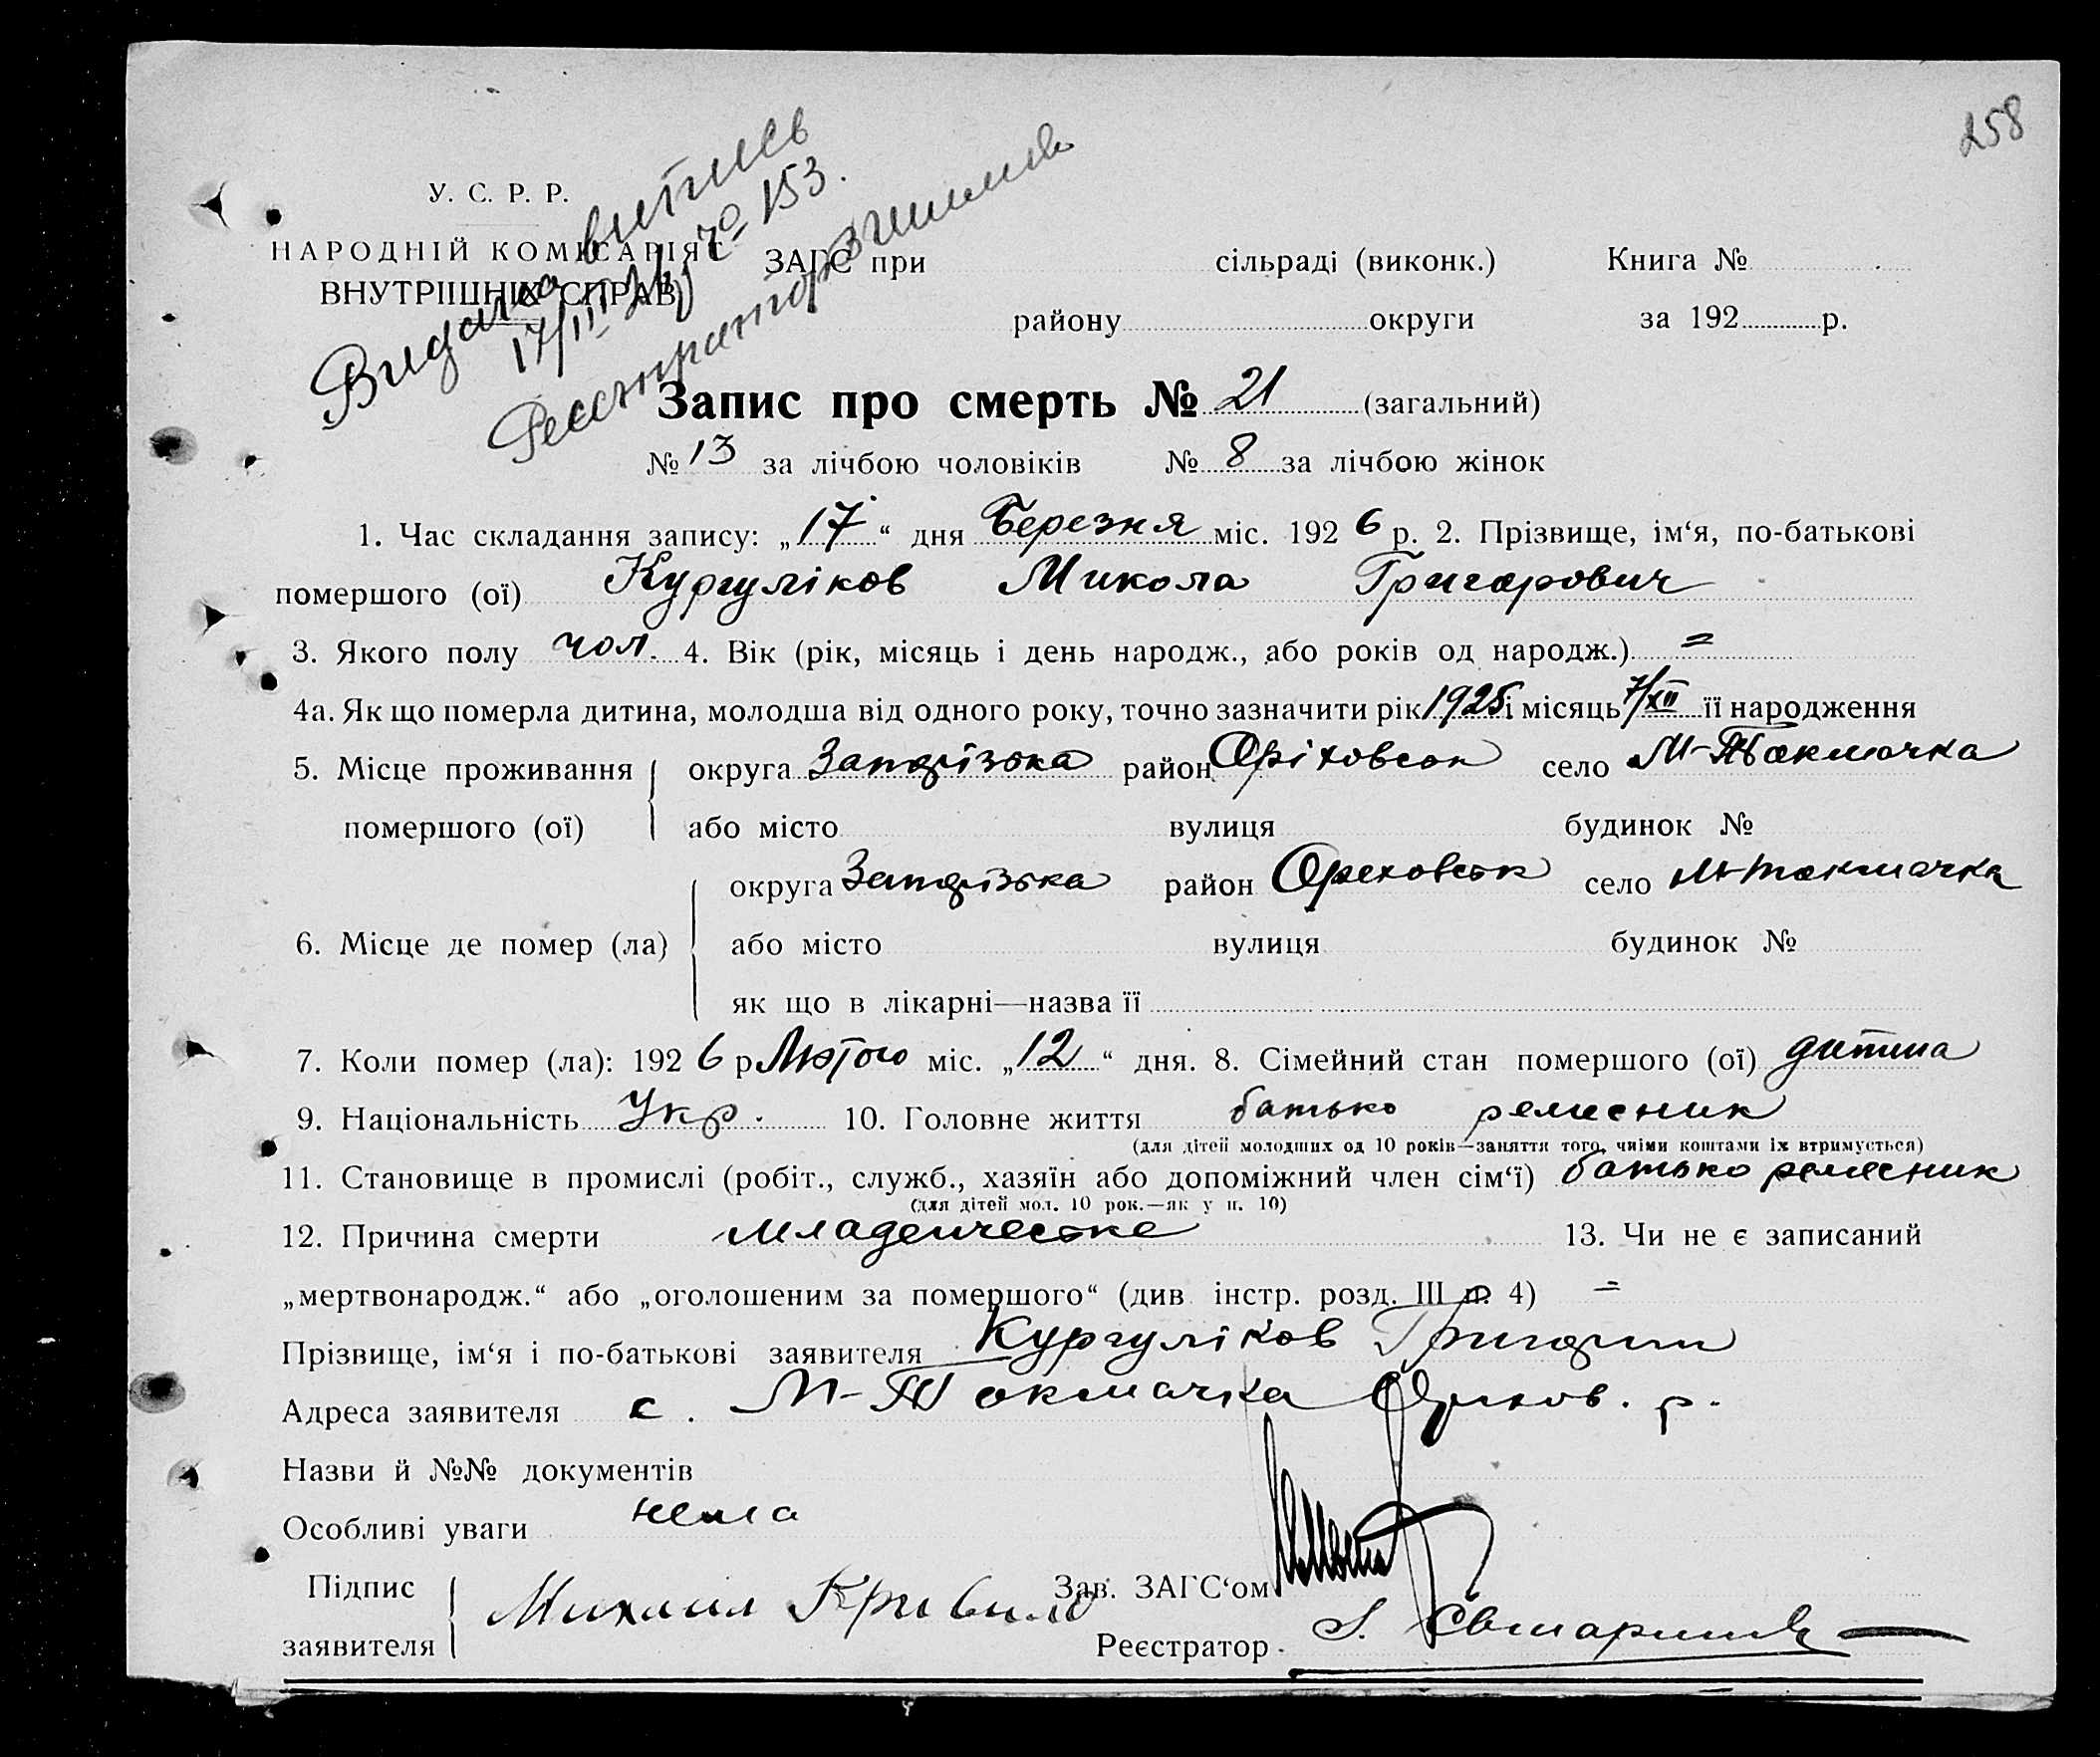 258
Видана витпись
17/III 26 р № 153.
У. С. Р. Р.
НАРОДНІЙ КОМІСАРІЯТ
ВНУТРІШНІХ СПРАВ
ЗАГС при сільраді (виконк.) Книга №
району округи за 192 р.
Запис про смерть № 21 (загальний)
№ 13 за лічбою чоловіків № 8 за лічбою жінок
1. Час складання запису: „17“ дня Березня міс. 1926 р. 2. Прізвище, ім‘я, по-батькові
помершого (ої) Кургуліков Микола Григорович
3. Якого полу чол. 4. Вік (рік, місяць і день народж., або років од народж.) =
4а. Як що померла дитина, молодша від одного року, точно зазначити рік 1925 і місяць 7/XII її народження
5. Місце проживання округа Запорізька район Оріховськ село М-Токмачка
помершого (ої) або місто вулиця будинок №
округа Запорізька район Ореховськ село М-Токмачка
6. Місце де помер (ла) або місто вулиця будинок №
як що в лікарні—назва її
7. Коли помер (ла): 1926 р Лютого міс. „12“ дня. 8. Сімейний стан помершого (ої) дитина
9. Національність Укр. 10. Головне життя батько ремесник
(для дітей молодших од 10 років—заняття того, чиїми коштами їх втримується)
11. Становище в промислі (робіт., служб., хазяїн або допоміжний член сім‘ї) батько ремесник
(для дітей мол. 10 рок.—як у п. 10)
12. Причина смерти младенческе 13. Чи не є записаний
„мертвонародж.“ або „оголошеним за помершого“ (див. інстр. розд. III п. 4) =
Прізвище, ім‘я і по-батькові заявителя Кургуліков Григорий
Адреса заявителя с. М-Токмачка р.
Назви й №№ документів
Особливі уваги нема
Підпис
заявителя Михаил
Зав. ЗАГС‘ом
Реєстратор